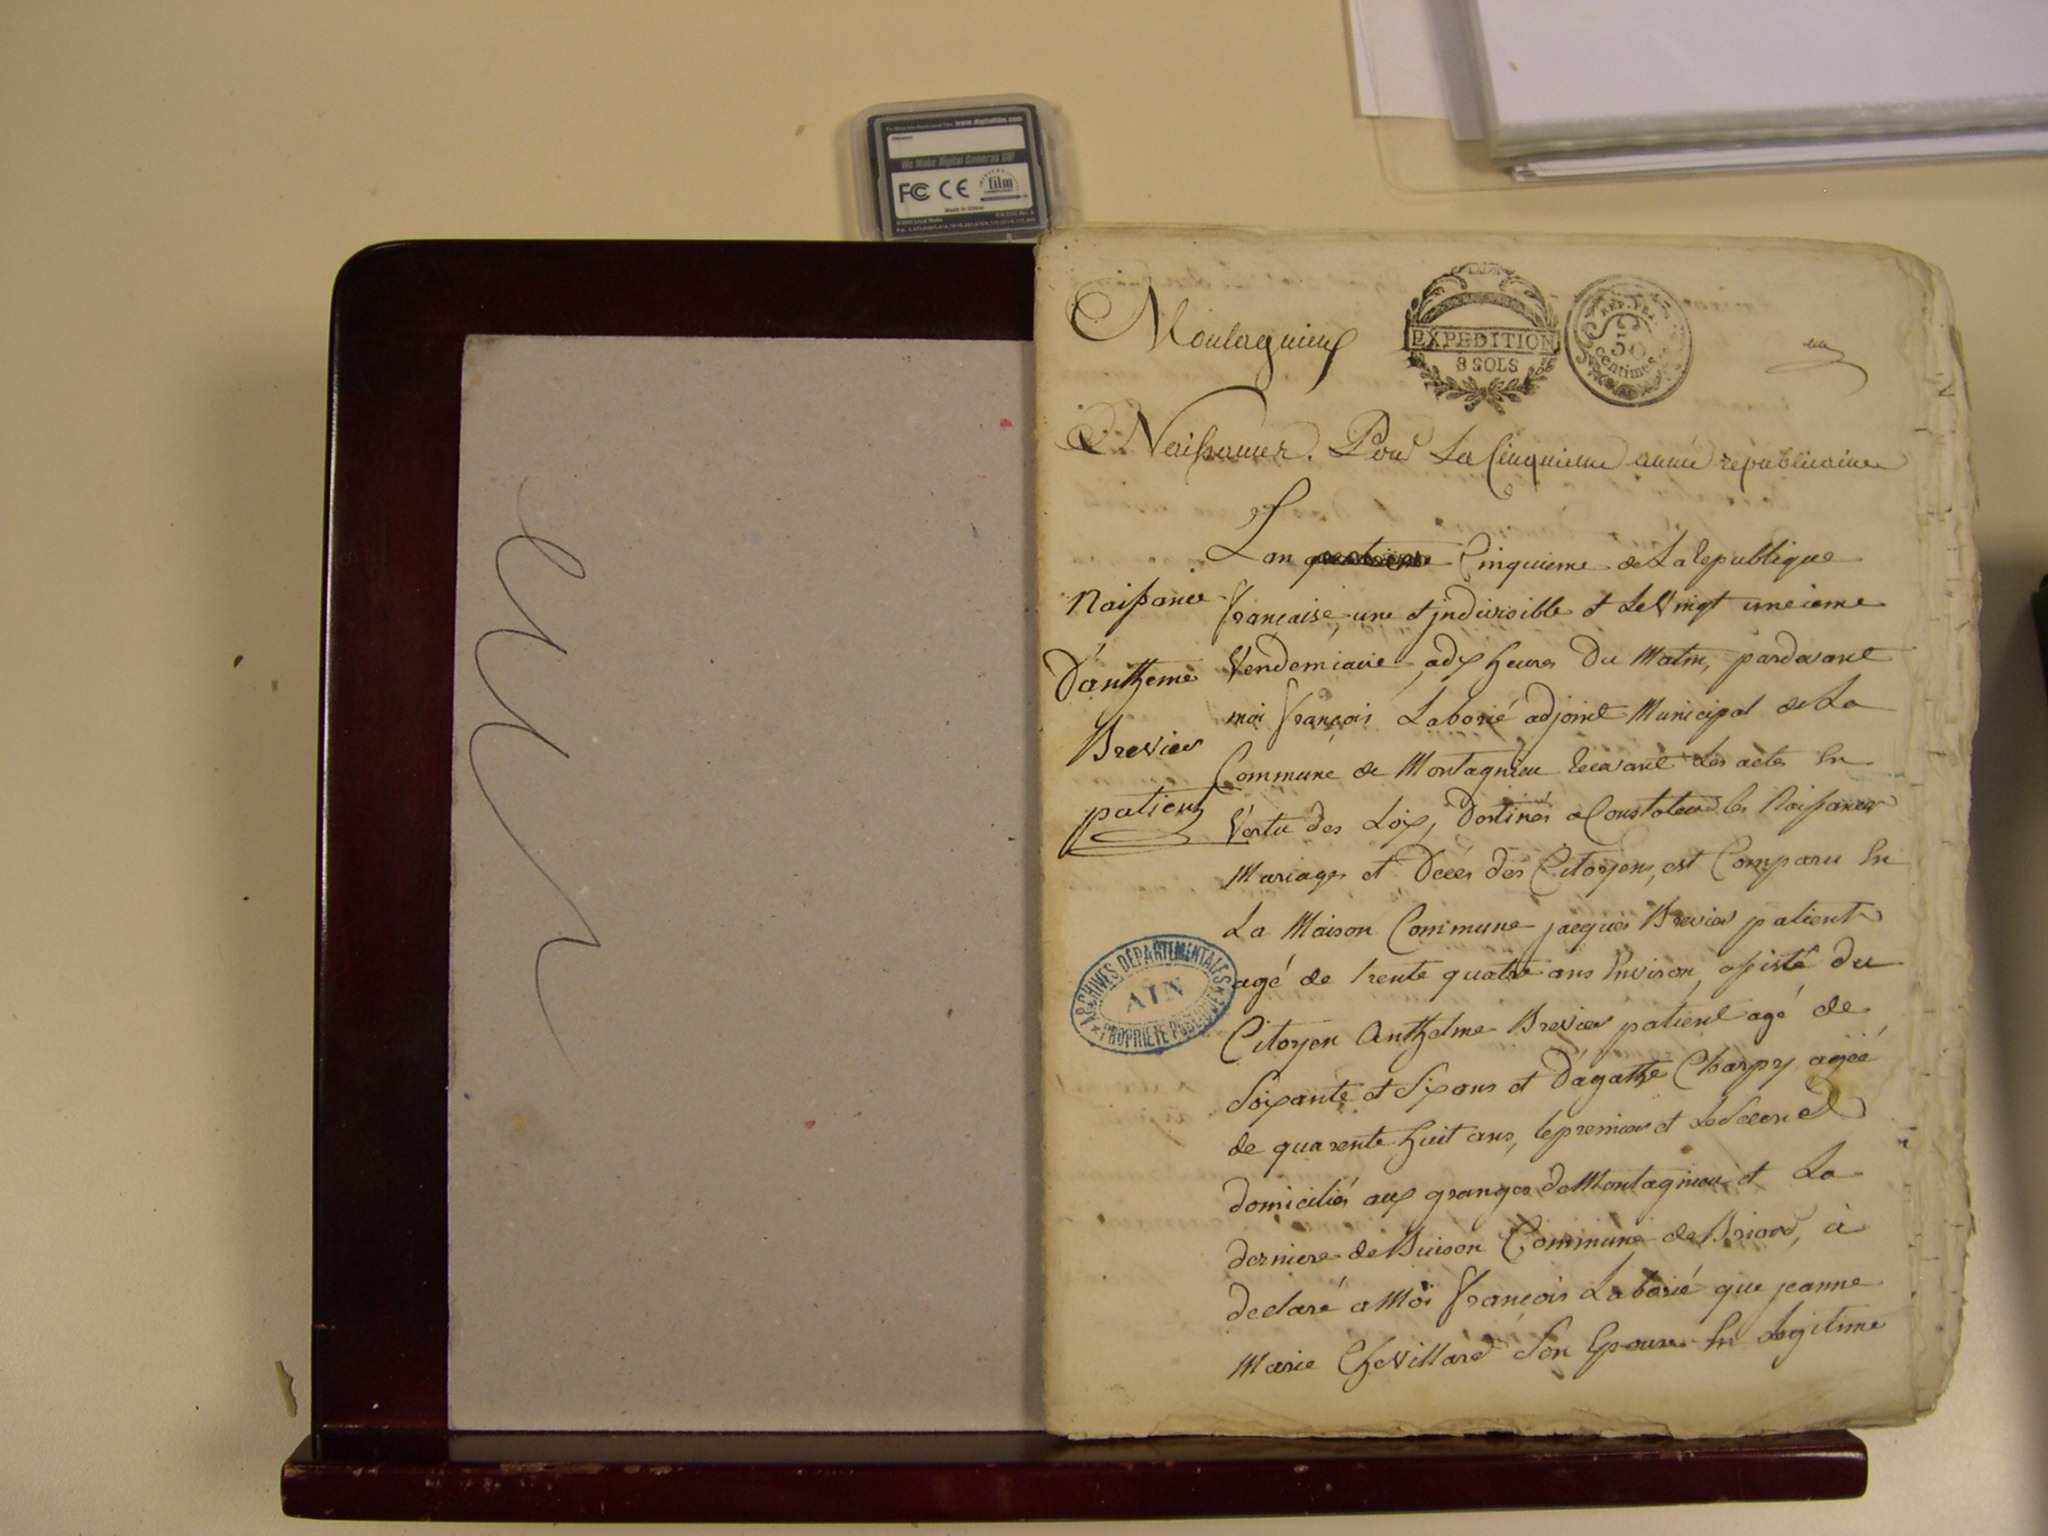 www.digitalfilm.com
We Make Digital Cameras GO!
FC CE film
Made in China
Montagnieux
EXPEDITION
8 SOLS
REP. FRA.
50
centimes
Naissances. Pour La Cinquieme année republicaine
Lan Cinquieme de La republique
Naissance française, une et jndivisible et Le Vingt unieme
D'antheme Vendemiaire, a dix heures Du Matin, pardevant
Brevier moi françois Laborié adjoint Municipal de La
patient Commune de Montagnieu Recevant Les actes En
Vertu des Loix, Destinés a Constater les Naissances
Mariages et Décés des Citoyens, est Comparu En
La Maison Commune jacques Brevier patient
agé de trente quatre ans Environ, assisté du
Citoyen Anthelme Brevier patient agé de
Soixante et Six ans et D'agathe Charpy agéé
de quarente huit ans, le premier et Le Second
domiciliés aux granges de Montagnieu et La
derniere de Buison Commune de Briord, à
declaré a Moi françois Laborié que jeanne
Marie Chevillard Son Epouse En Legitime
ARCHIVES DÉPARTEMENTALES
AIN
PROPRIÉTÉ PUBLIQUE